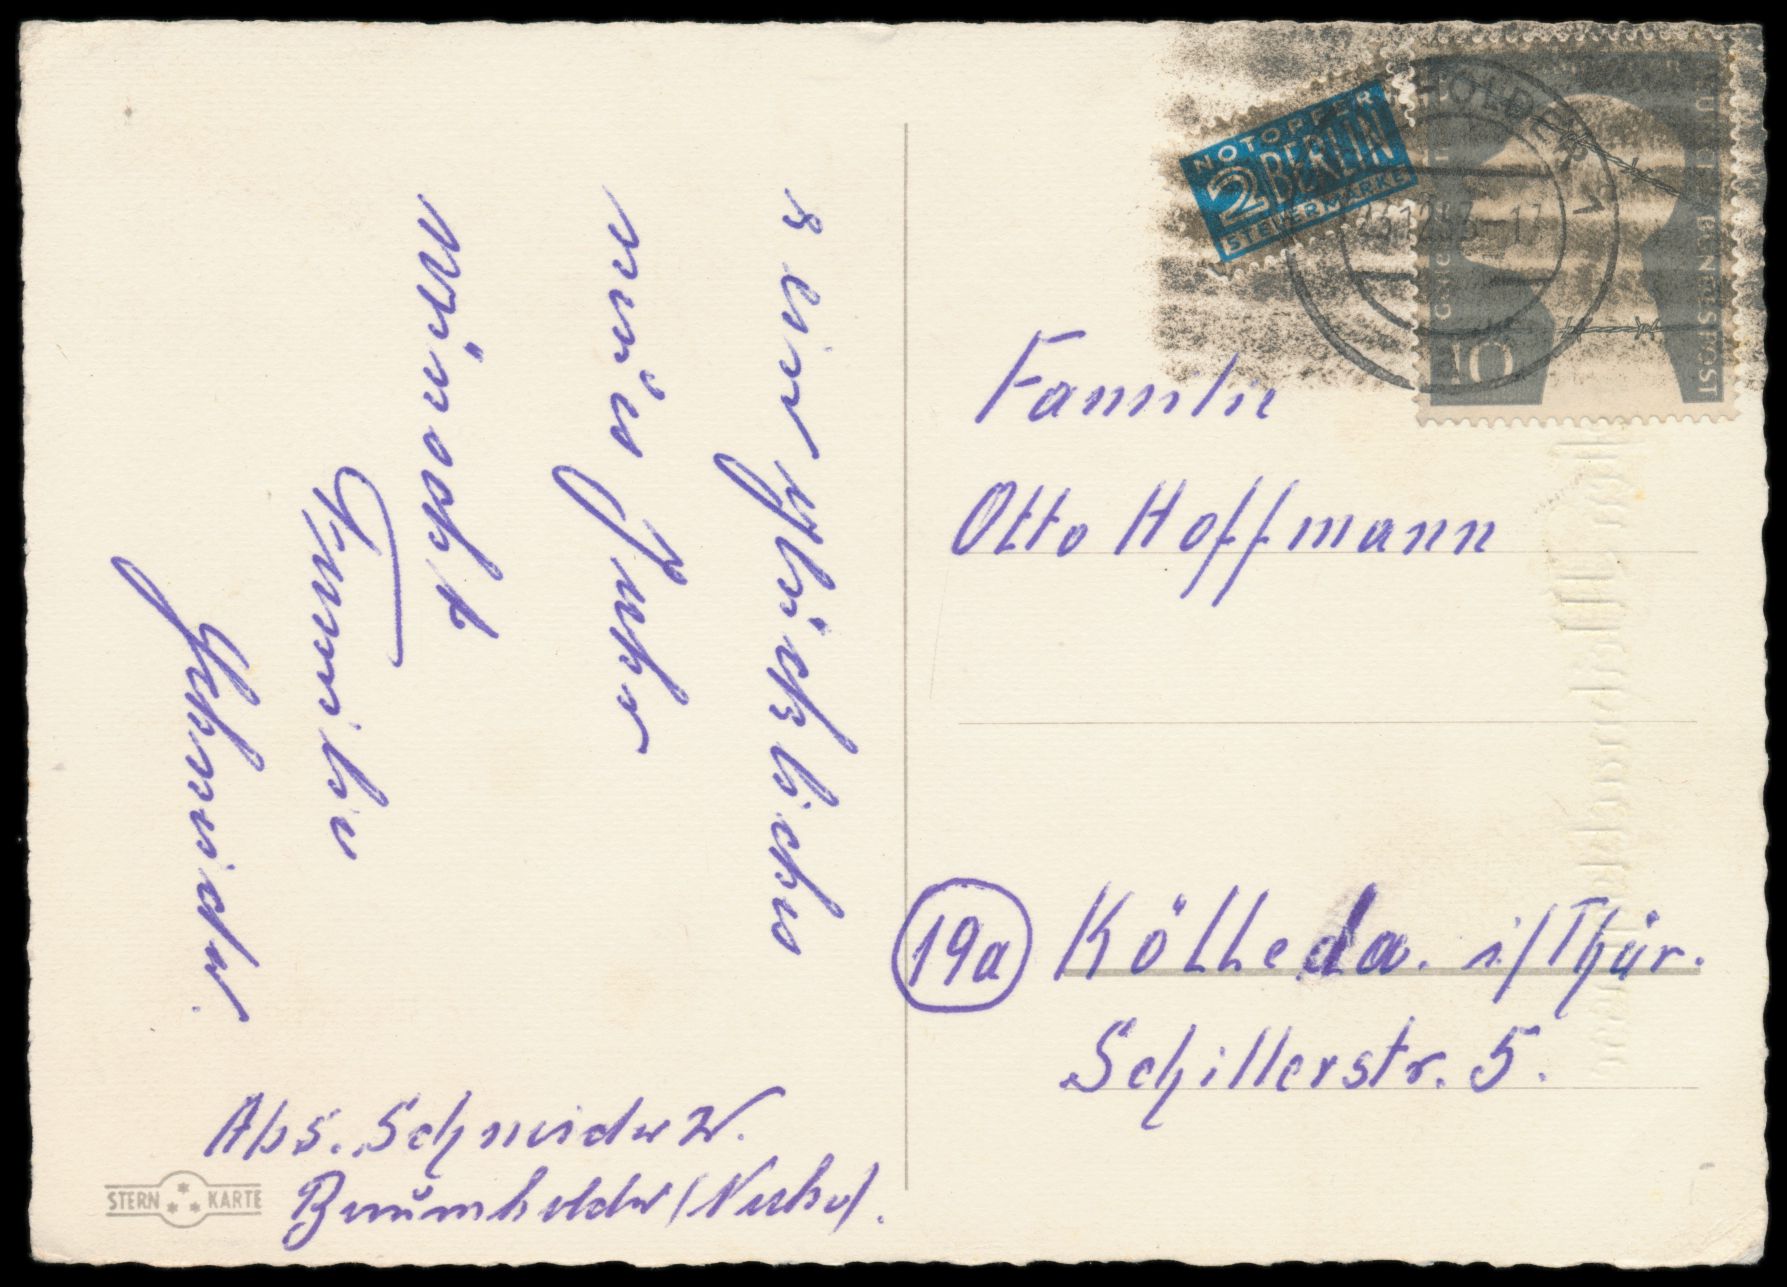 & ein glückliches
neues Jahr
wünscht
Familie
Schneider.
Abs. Schneider W.
Baumholder/(Nahe).
STERN KARTE
NOTOPFER
2 BERLIN
STEUERMARKE
HOLDER
23.12.53-17
10
BUNDESPOST
Familie
Otto Hoffmann
19a Kölleda. i/Thür.
Schillerstr. 5.